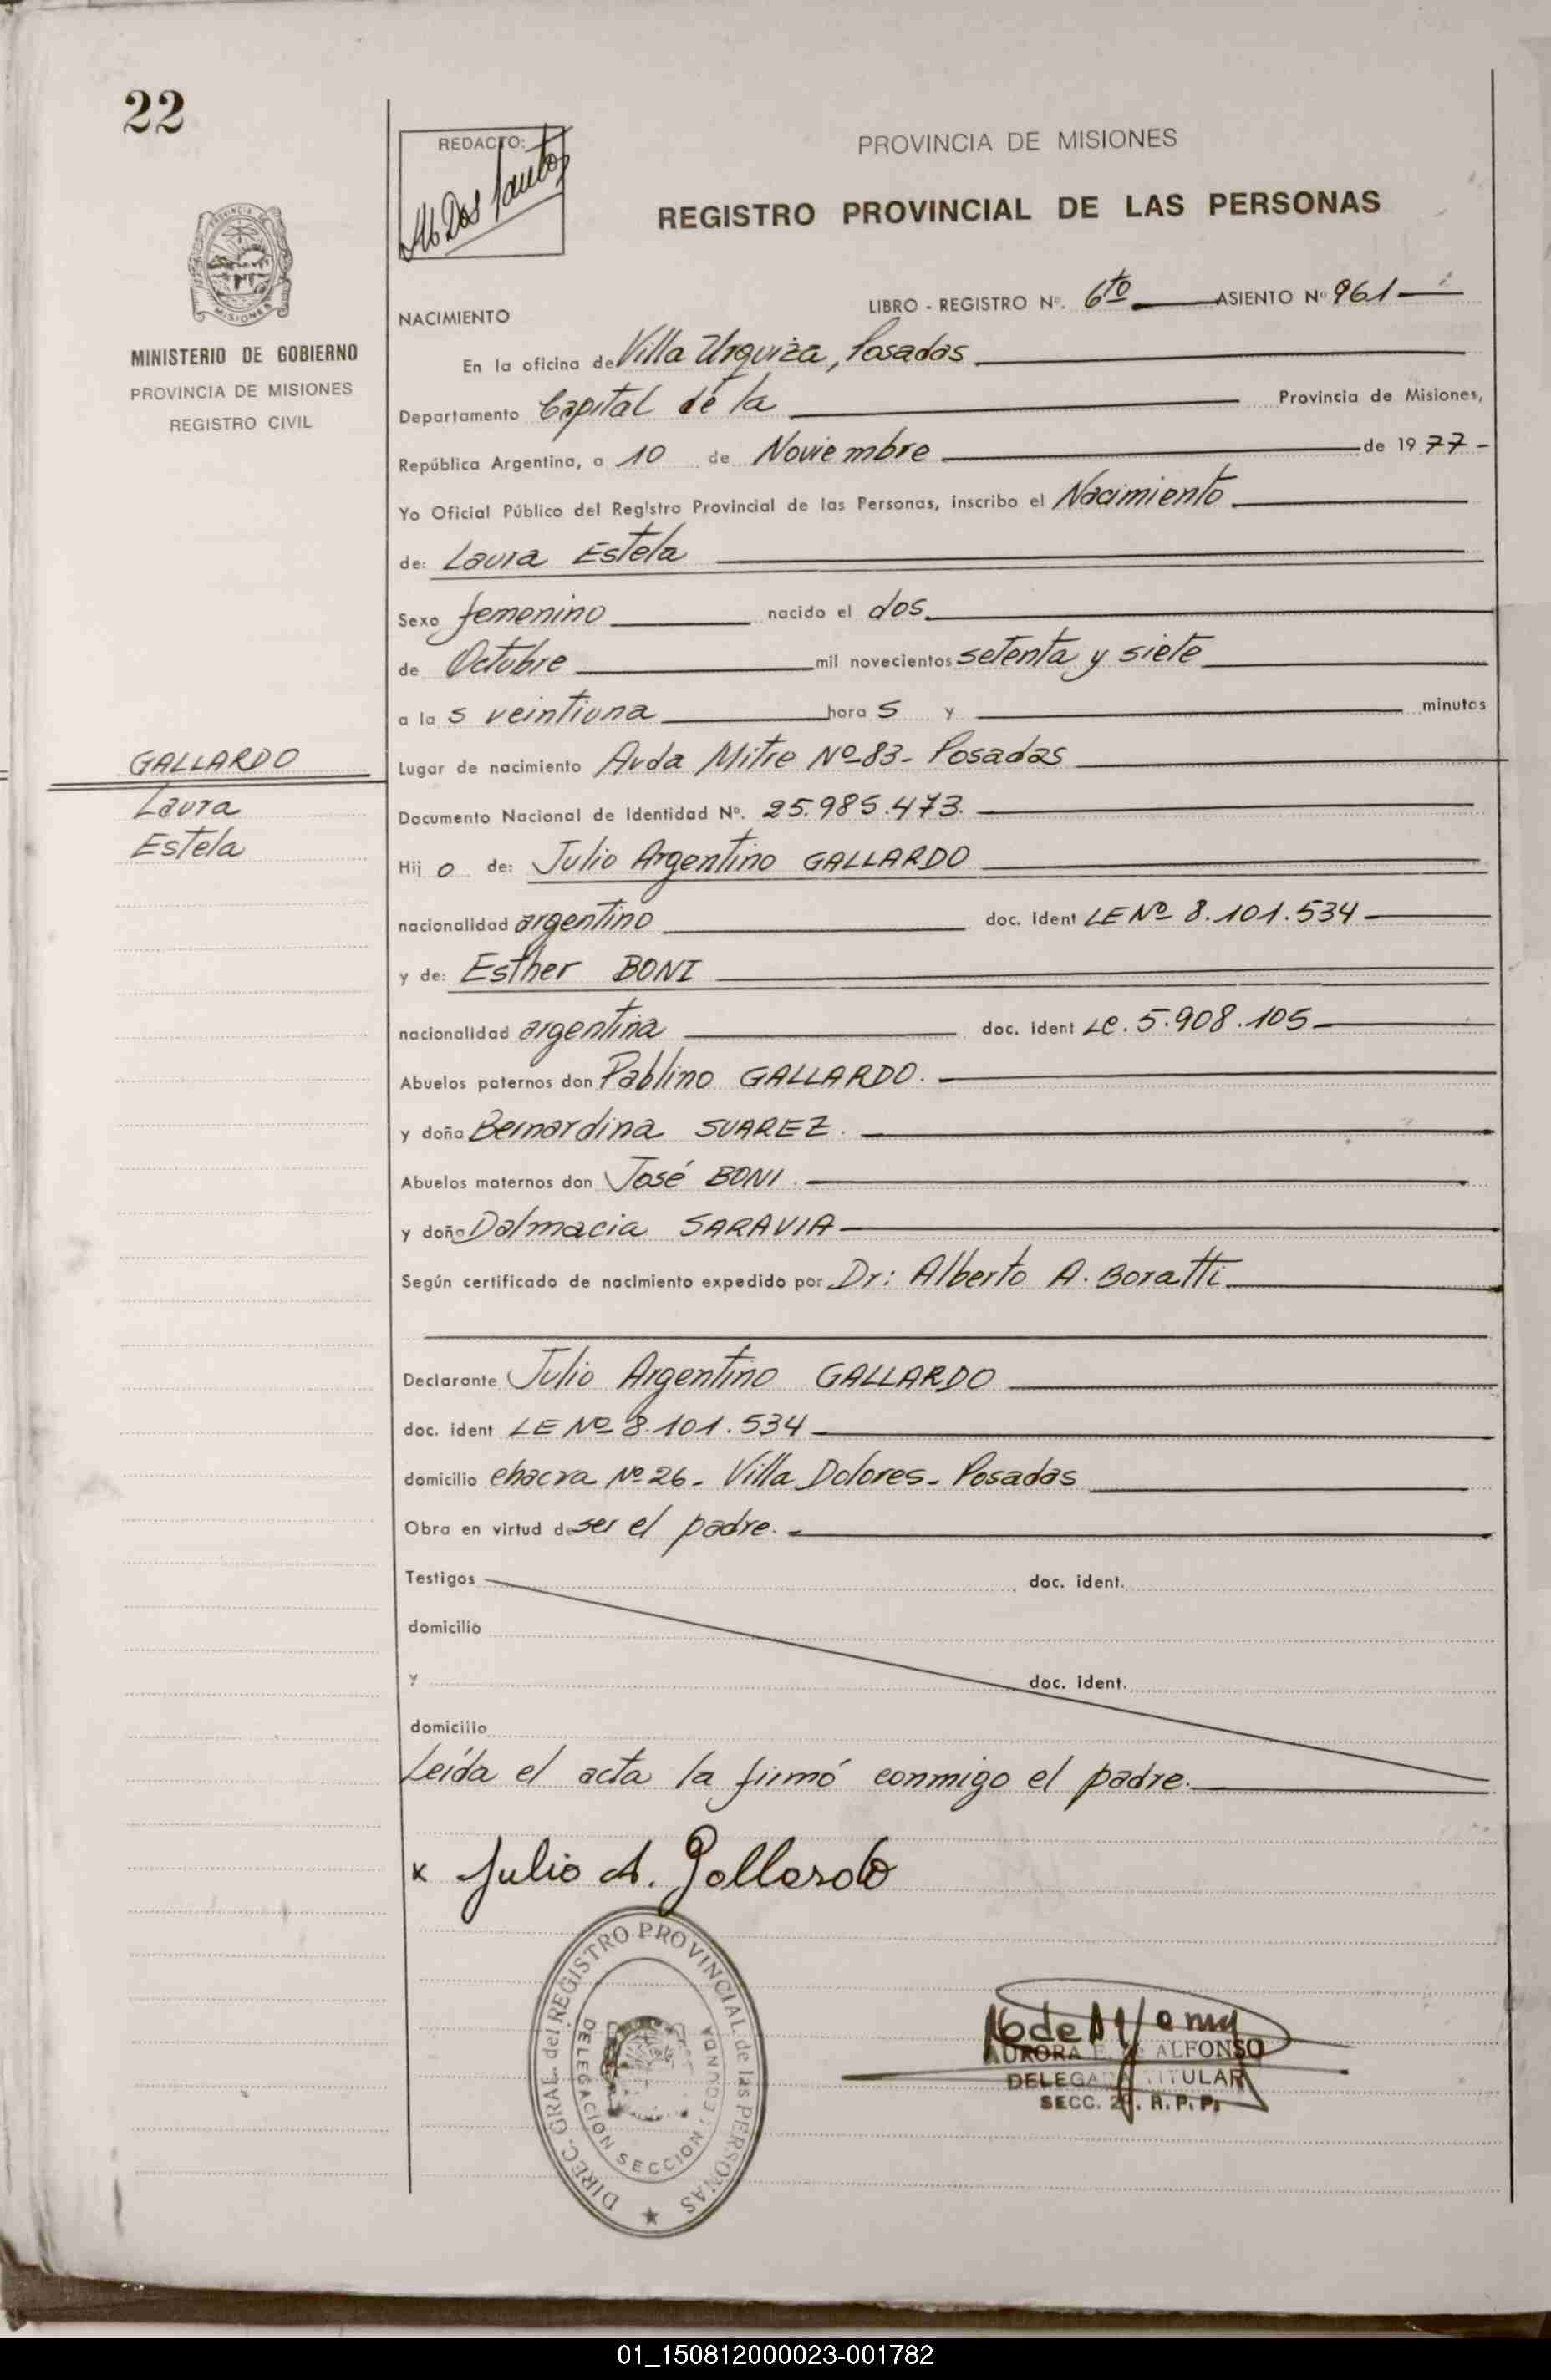 22
REDACTO:
PROVINCIA DE MISIONES
REGISTRO PROVINCIAL DE LAS PERSONAS
LIBRO - REGISTRO Nº. 6to ASIENTO Nº 961
NACIMIENTO
MISIONES
MINISTERIO DE GOBIERNO
PROVINCIA DE MISIONES
REGISTRO CIVIL
En la oficina de Villa Urquiza, Posadas
Departamento Capital de la Provincia de Misiones,
República Argentina, a 10 de Noviembre de 1977-
Yo Oficial Público del Registro Provincial de las Personas, inscribo el Nacimiento
de: Laura Estela
Sexo femenino nacido el dos
de Octubre mil novecientos setenta y siete
a la s veintiuna hora s y minutos
Lugar de nacimiento Avda Mitre Nº 83- Posadas
GALLARDO
Laura
Estela
Documento Nacional de Identidad Nº. 25.985.473.
Hij o de: Julio Argentino GALLARDO
nacionalidad argentino doc. ident LE Nº 8.101.534
y de: Esther BONI
nacionalidad argentina doc. ident Lc. 5.908.105
Abuelos paternos don Pablino GALLARDO.
y doña Bernardina SUAREZ.
Abuelos maternos don José BONI.
y doña Dalmacia SARAVIA
Según certificado de nacimiento expedido por Dr: Alberto A. Boratti
Declarante Julio Argentino GALLARDO
doc. ident LE Nº 8.101.534
domicilio chacra Nº 26- Villa Dolores- Posadas
Obra en virtud de ser el padre.
Testigos doc. ident.
domicilio
y doc. ident.
domicilio
Leída el acta la firmó conmigo el padre.
x Julio A. Gallardo
DIREC. GRAL. del REGISTRO PROVINCIAL de las PERSONAS
DELEGACION SECCION SEGUNDA
AURORA ALFONSO
DELEGADA TITULAR
SECC. 2ª. R.P.P.
01_150812000023-001782